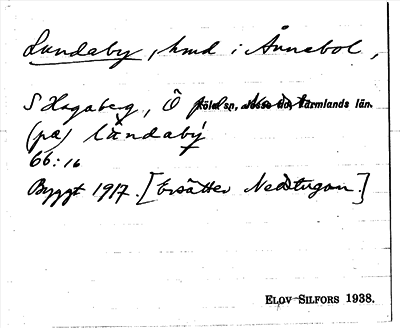 Lundaby, hmd i Ånnebol,
S Hagaberg, Ö
Köla sn, Jösse hd, Värmlands län.
(på) lundaby
66:16
Byggt 1917. [Ersätter Nedstugan.]
ELOV SILFORS 1938.